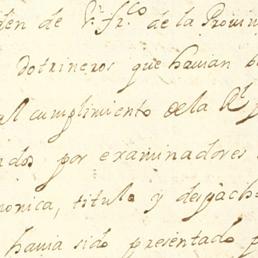 den de Sn. frco de la Provin
Dotrineros que havian
al cumplimiento de la Rl
por examinadores
nonica, titulo y despach
havia sido presentado p